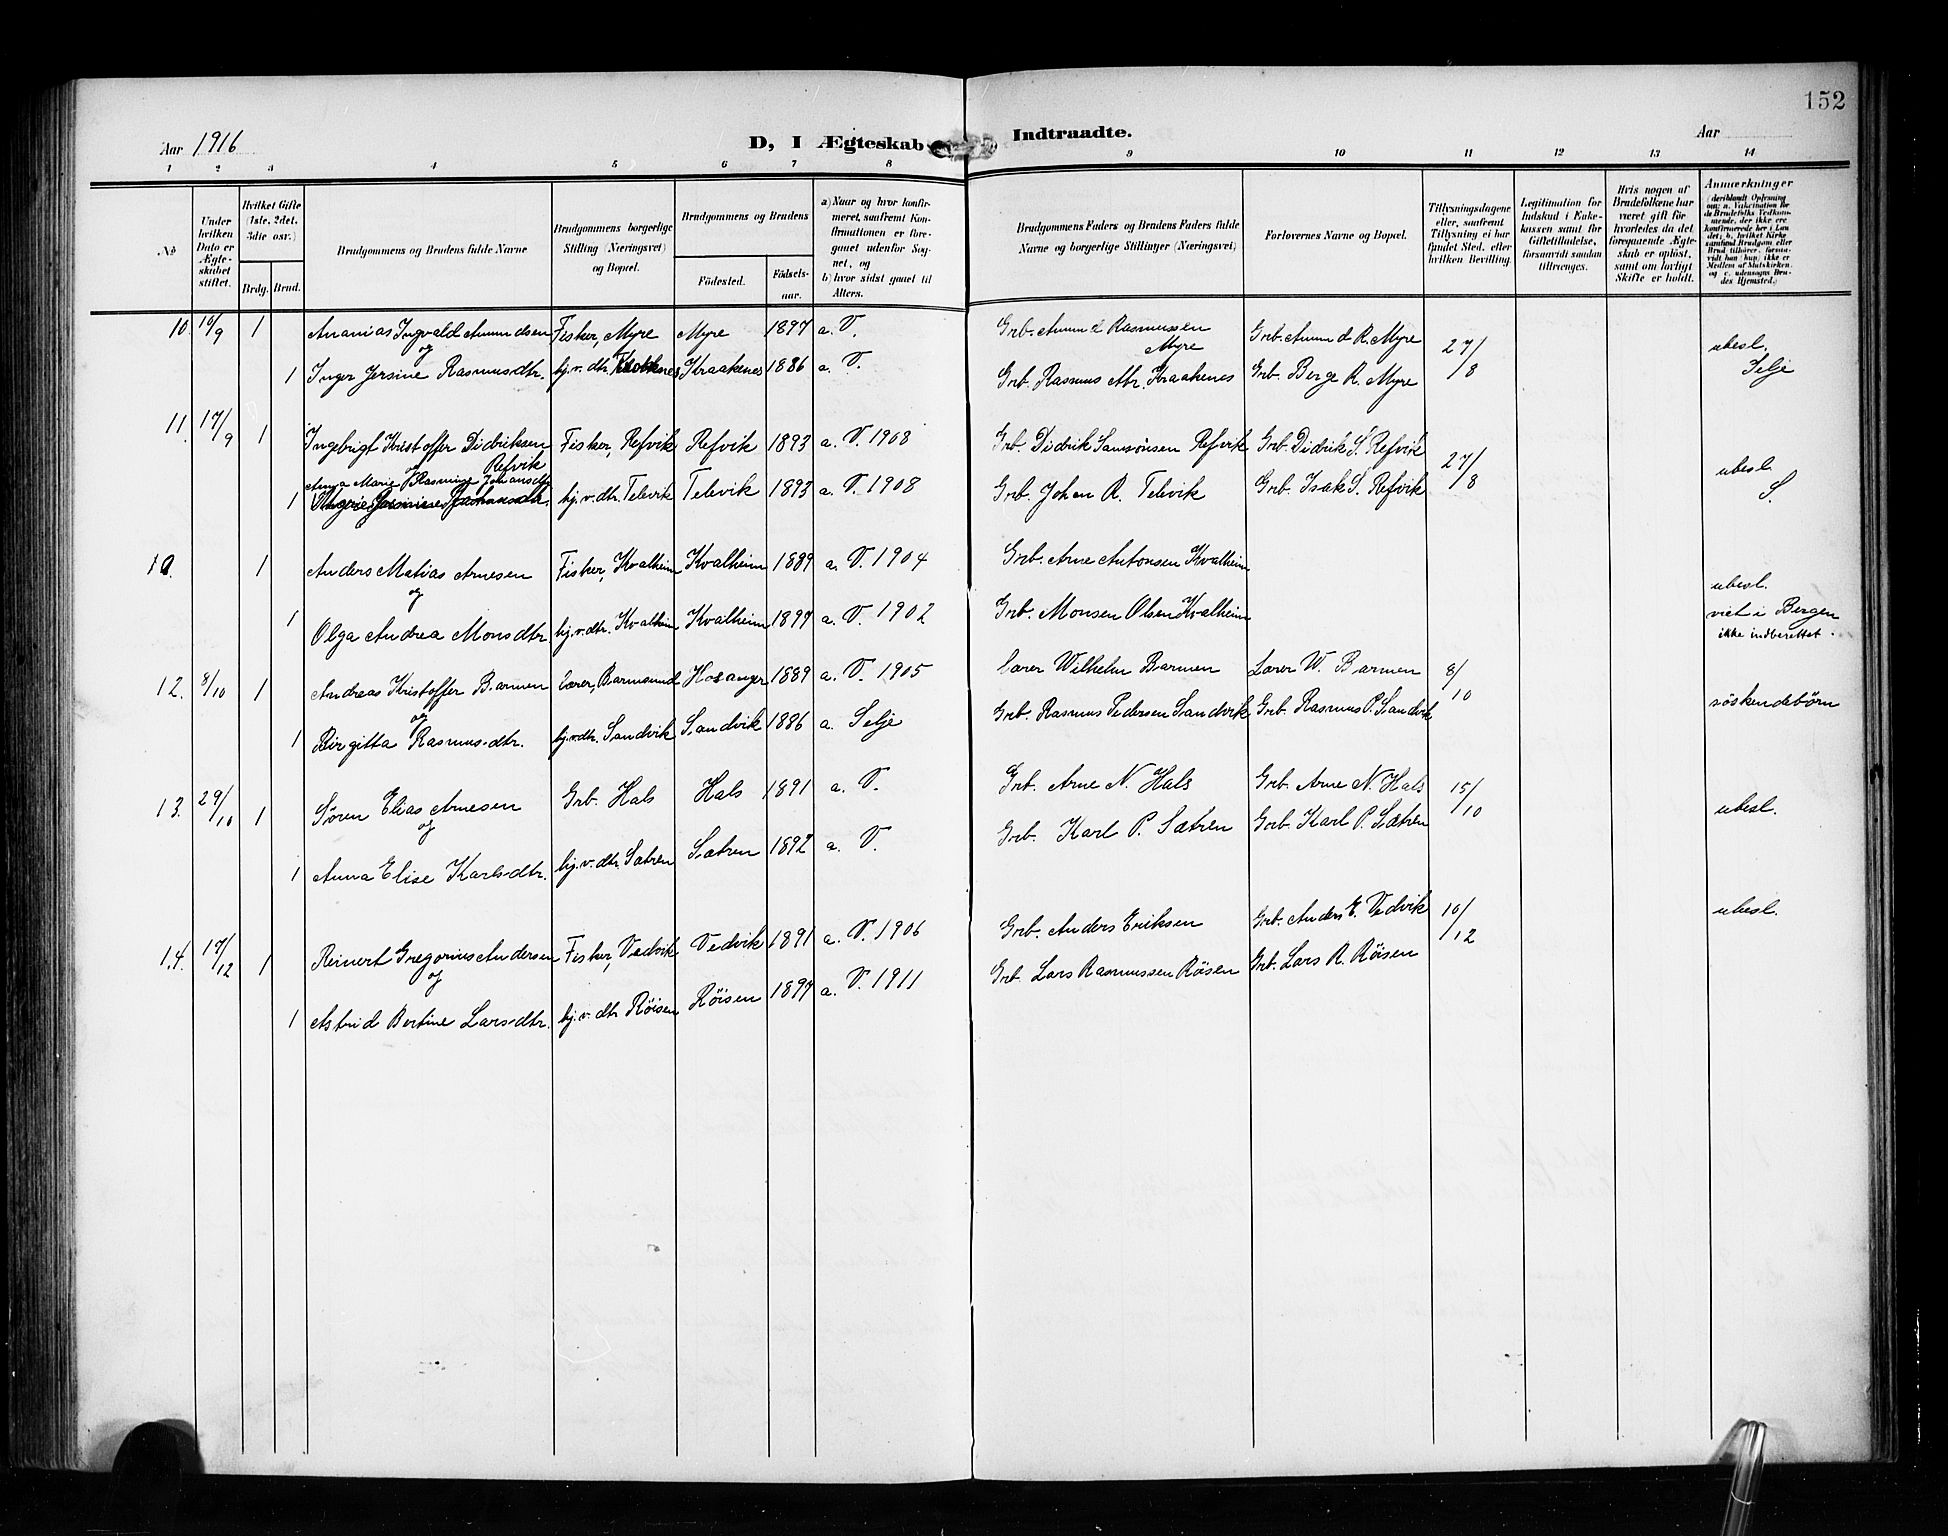 152
Aar 1916
D, I Ægteskab Indtraadte.
Aar
1 2 3 4 5 6 7 8 9 10 11 12 13 14
No
Under hvilken Dato er Ægteskabet stiftet.
Hvilket Gifte (1ste, 2det, 3die osv.)
Brdg. Brud.
Brudgommens og Brudens fulde Navne
Brudgommens borgerlige Stilling (Næringsvei) og Bopæl.
Brudgommens og Brudens
Födested.
Födselsaar.
a) Naar og hvor konfirmeret, saafremt Konfirmationen er foregaaet udenfor Sognet, og
b) hvor sidst gaaet til Alters.
Brudgommens Faders og Brudens Faders fulde Navne og borgerlige Stillinger (Næringsvei)
Forlovernes Navne og Bopæl.
Tillysningsdagene eller, saafremt Tillysning ei har fundet Sted, efter hvilken Bevilling.
Legitimation for Indskud i Enkekassen samt for Giftetilladelse, forsaavidt saadan tiltrænges.
Hvis nogen af Brudefolkene har været gift før hvorledes da det foregaaende Ægteskab er opløst, samt om lovligt Skifte er holdt.
Anmærkninger (deriblandt Oplysning om: a. Vakcination for de Brudefolks Vedkommende, der ikke ere konfirmerede her i Landet; b. hvilket Kirkesamfund Brudgom eller Brud tilhører, forsaavidt han (hun) ikke er Medlem af Statskirken, og c. udensogns Brudes Hjemsted.)
10. 10/9 1 Ananias Ingvald Amundsen Fisker, Myre Myre 1897 a. V. Grb. Amund Rasmussen Myre Grb. Amund R. Myre 27/8 ubesl.
og
1 Inger Jersine Rasmusdtr. hj.v. dtr. Kraakenes 1886 a. V. Grb. Rasmus Mr. Kraakenes Grb. Berge R. Myre Selje
11. 17/9 1 Ingebrigt Kristoffer Didriksen Refvik Fisker, Refvik Refvik 1893 a. V. 1908 Grb. Didrik Samsønsen Refvik Grb. Didrik S. Refvik 27/8 ubesl.
og
Anna Marie Rasmine Johansdtr
1 hj.v. dtr. Televik Televik 1893 a. V. 1908 Grb. Johan R. Televik Grb. Isak S. Refvik S.
1 Anders Matias Arnesen Fisker, Kvalheim Kvalheim 1889 a. V. 1904 Grb. Arne Antonsen Kvalheim ubesl.
og
1 Olga Andrea Monsdtr. hj.v.dtr. Kvalheim Kvalheim 1897 a. V. 1902 Grb. Monsen Olsen Kvalheim viet i Bergen
ikke indberettet.
12. 8/10 1 Andreas Kristoffer Barmen Lærer, Barmsund Hosanger 1889 a. V. 1905 Lærer Wilhelm Barmen Lærer W. Barmen 8/10 søskendebørn
og
1 Birgitta Rasmusdtr. hj.v.dtr. Sandvik Sandvik 1886 a. Selje Grb. Rasmus Pedersen Sandvik Grb. Rasmus P. Sandvik
13. 29/10 1 Søren Elias Arnesen Grb. Hals Hals 1891 a. V. Grb. Arne N. Hals Grb. Arne N. Hals 15/10 ubesl.
og
1 Anna Elise Karlsdtr. hj.v. dtr. Sætren Sætren 1892 a. V. Grb. Karl P. Sætren Grb. Karl P. Sætren
14. 17/12 1 Reinert Gregorius Andersen Fisker, Vedvik Vedvik 1891 a. V. 1906 Grb. Anders Eriksen Grb. Anders E. Vedvik 10/12 ubesl.
og
1 Astrid Bertine Larsdtr. hj.v. dtr Røisen Røisen 1897 a. V. 1911 Grb. Lars Rasmussen Røisen Grb. Lars R. Røisen